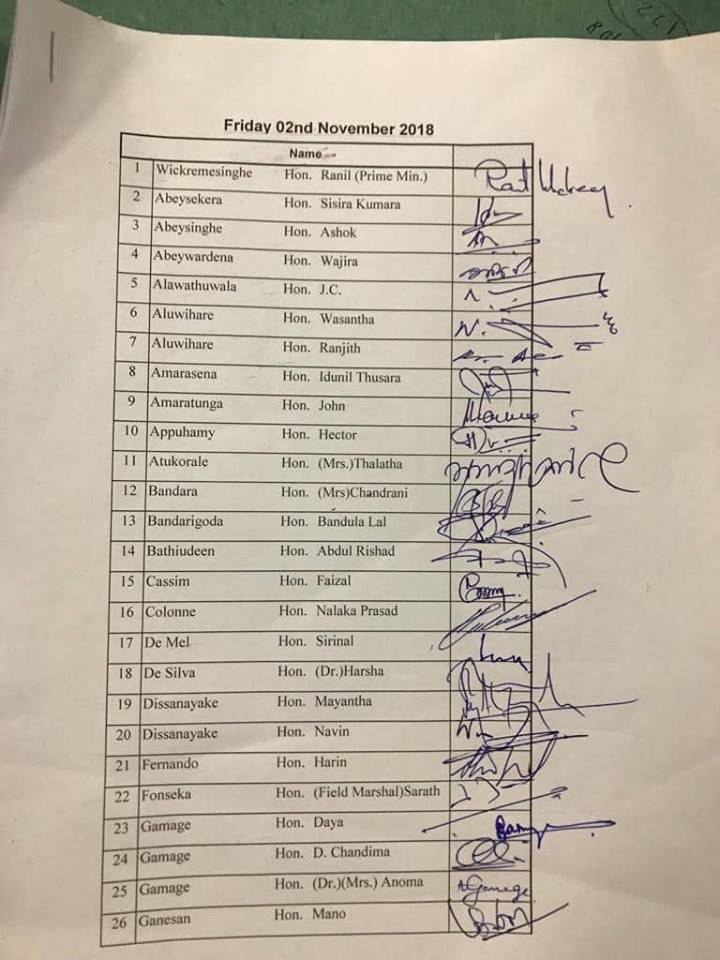 Friday 02nd November 2018
Name
1 Wickremesinghe Hon. Ranil (Prime Min.)
2 Abeysekera Hon. Sisira Kumara
3 Abeysinghe Hon. Ashok
4 Abeywardena Hon. Wajira
5 Alawathuwala Hon. J.C.
6 Aluwihare Hon. Wasantha
7 Aluwihare Hon. Ranjith
8 Amarasena Hon. Idunil Thusara
9 Amaratunga Hon. John
10 Appuhamy Hon. Hector
11 Atukorale Hon. (Mrs.)Thalatha
12 Bandara Hon. (Mrs)Chandrani
13 Bandarigoda Hon. Bandula Lal
14 Bathiudeen Hon. Abdul Rishad
15 Cassim Hon. Faizal
16 Colonne Hon. Nalaka Prasad
17 De Mel Hon. Sirinal
18 De Silva Hon. (Dr.)Harsha
19 Dissanayake Hon. Mayantha
20 Dissanayake Hon. Navin
21 Fernando Hon. Harin
22 Fonseka Hon. (Field Marshal)Sarath
23 Gamage Hon. Daya
24 Gamage Hon. D. Chandima
25 Gamage Hon. (Dr.)(Mrs.) Anoma
26 Ganesan Hon. Mano